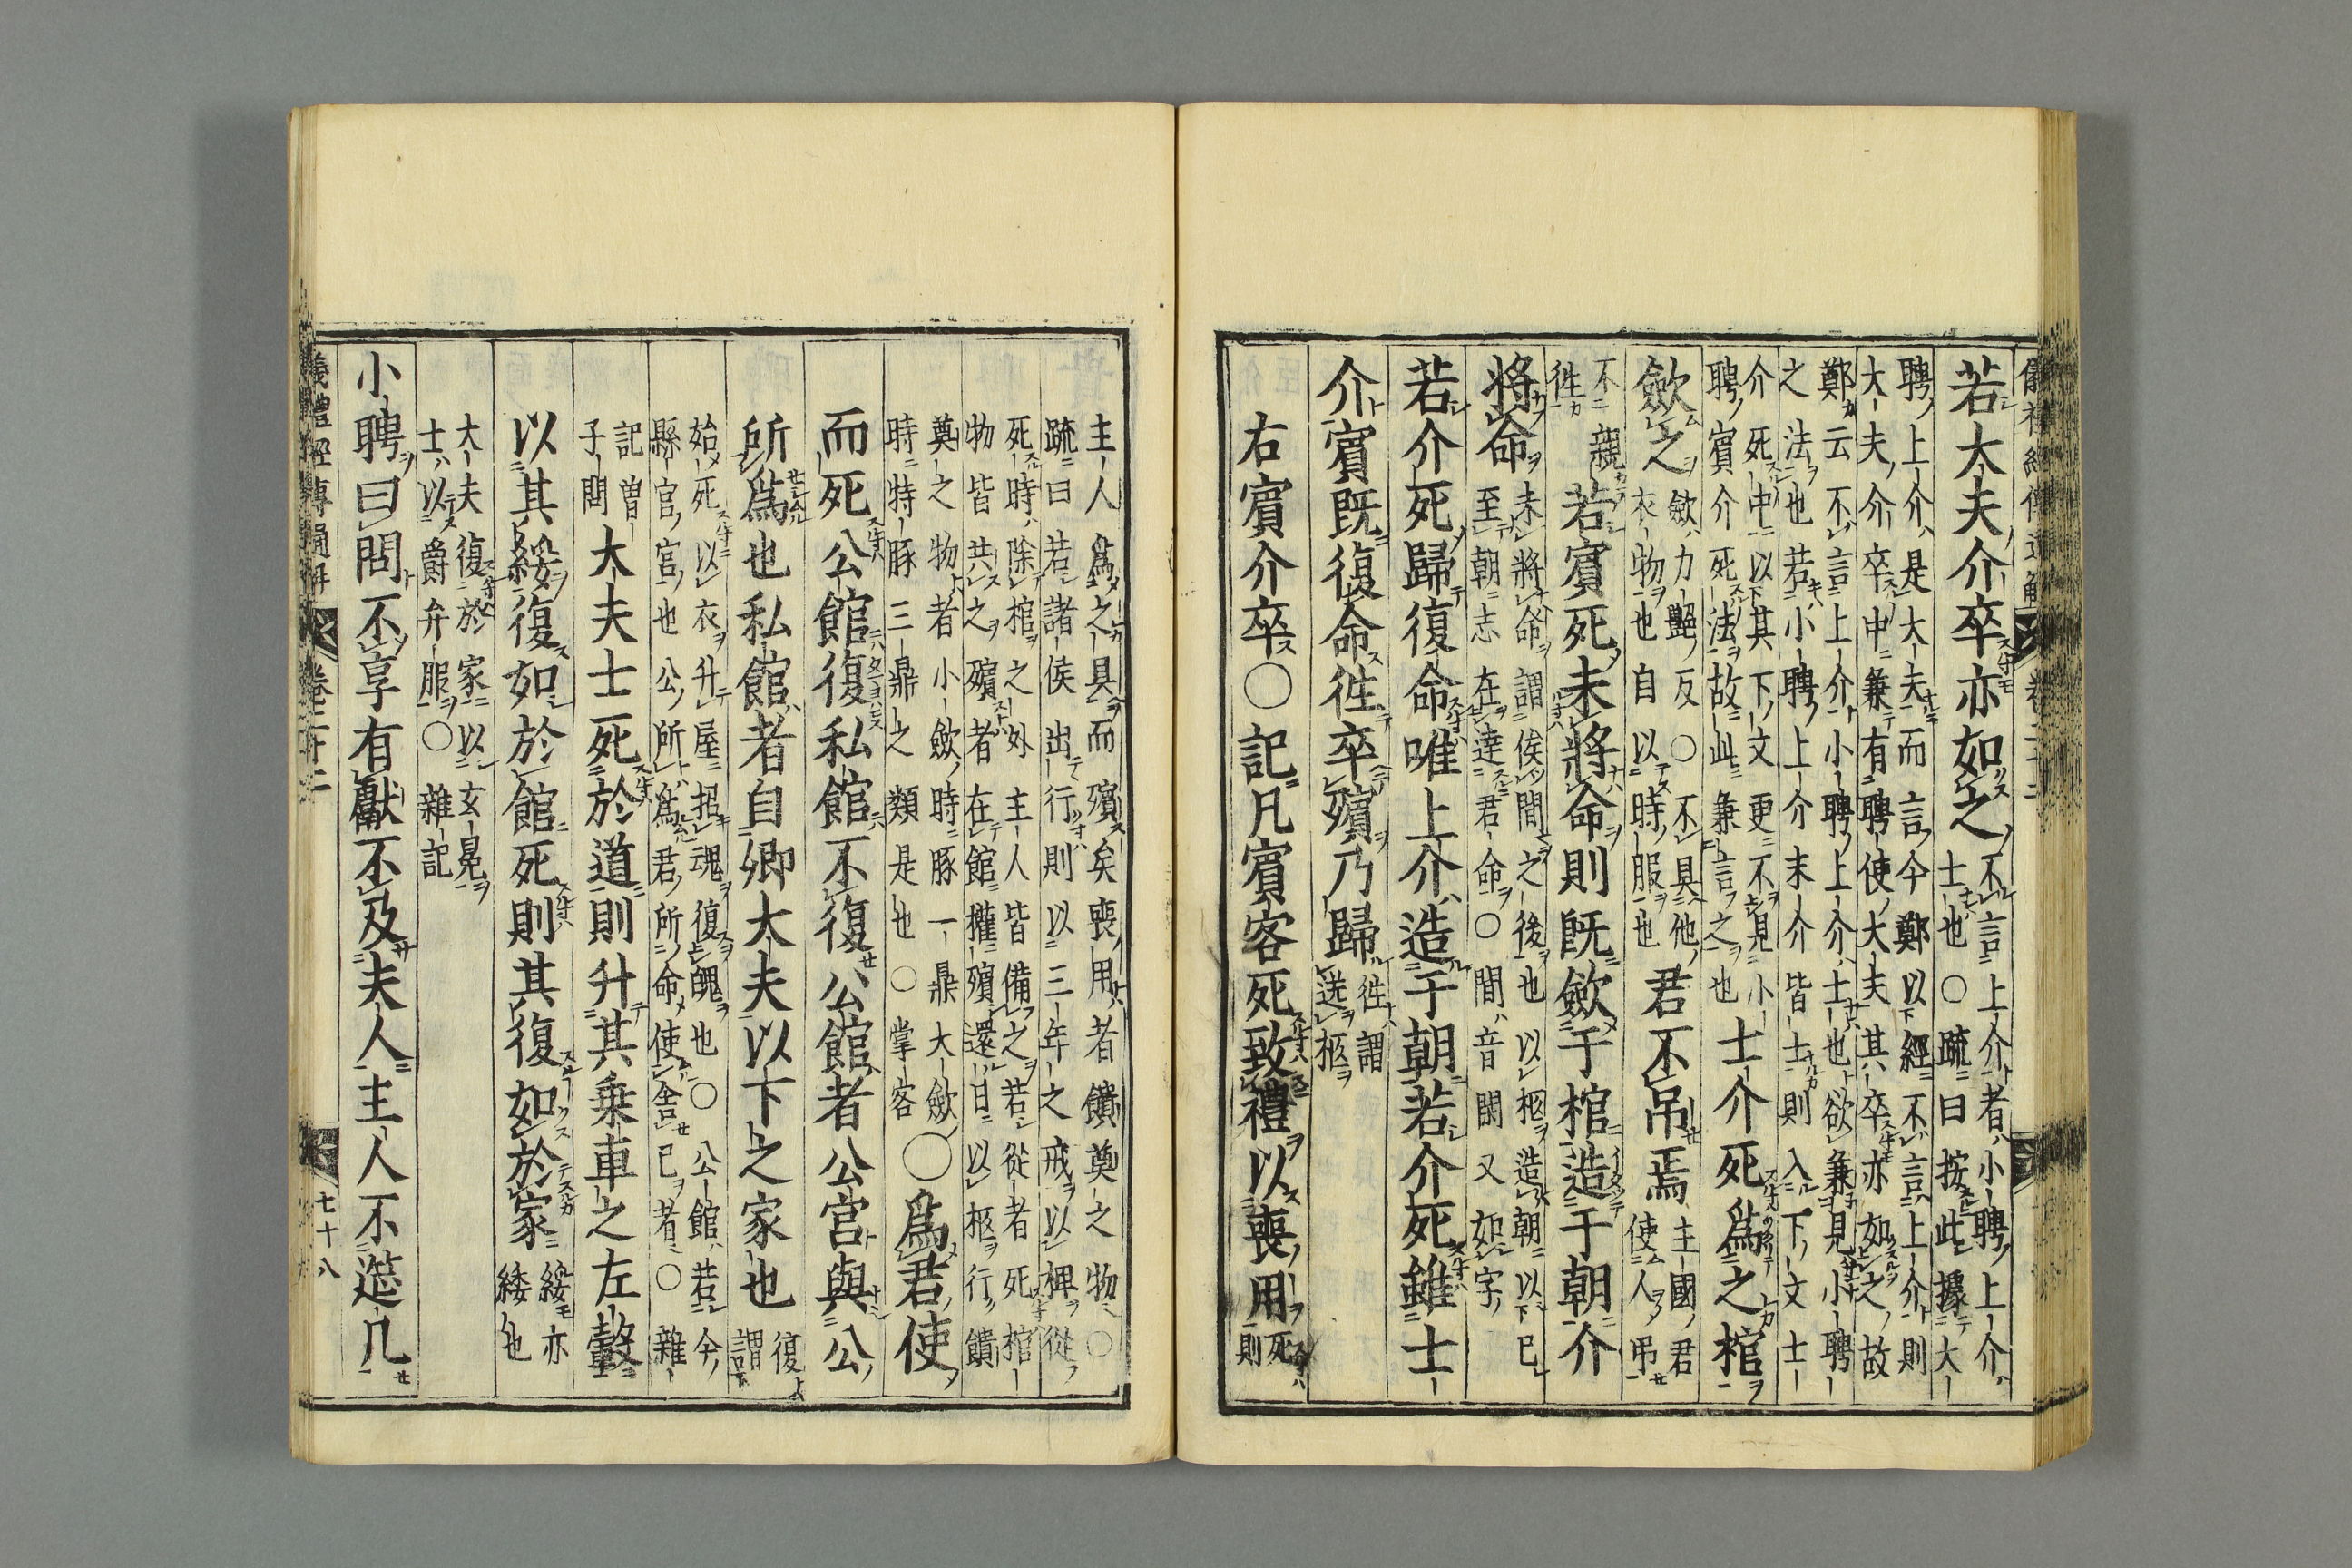 若大夫介卒亦如之
不言上介者小聘上介
士也〇疏曰按此據大
聘上介是大夫而言今鄭以經不言上介則
大夫介卒中兼有聘使大夫其卒亦如之故
鄭云不言上介小聘上介士也欲兼見小聘
之法也若小聘上介末介皆士則入下文士
介死中以其下文更不見小
聘賓介死法故此兼言之也
士介死爲之棺
歛之
歛力豔反〇不具他
衣物也自以時服也
君不吊焉
主國君
使人弔
不親
徃
若賓死未將命則既歛于棺造于朝介
將命
未將命謂俟間之後也以柩造朝以已
至朝志在達君命〇間音閑又如字
若介死歸復命唯上介造于朝若介死雖士
介賓既復命徃卒殯乃歸
徃謂
送柩
右賓介卒〇記凡賓客死致禮以喪用
死
則
主人爲之具而殯矣喪用者饋奠之物〇
疏曰若諸侯出行則以三年之戒以椑從
死時除棺之外主人皆備之若從者死棺
物皆共之殯者在館權殯還日以柩行饋
奠之物者小歛時豚一鼎大歛
時特豚三鼎之類是也〇掌客
〇爲君使
而死公館復私館不復公館者公宮與公
所爲也私館者自卿大夫以下之家也
復
謂
始死以衣升屋招魂復魄也〇公館若今
縣官宮也公所爲君所命使舍己者〇雜
記曾
子問
大夫士死於道則升其乗車之左轂
以其綏復如於館死則其復如於家
綏亦
緌也
大夫復於家以玄冕
士以爵弁服〇雜記
小聘曰問不享有獻不及夫人主人不筵几
儀禮經傳通解 卷二十二 七十八